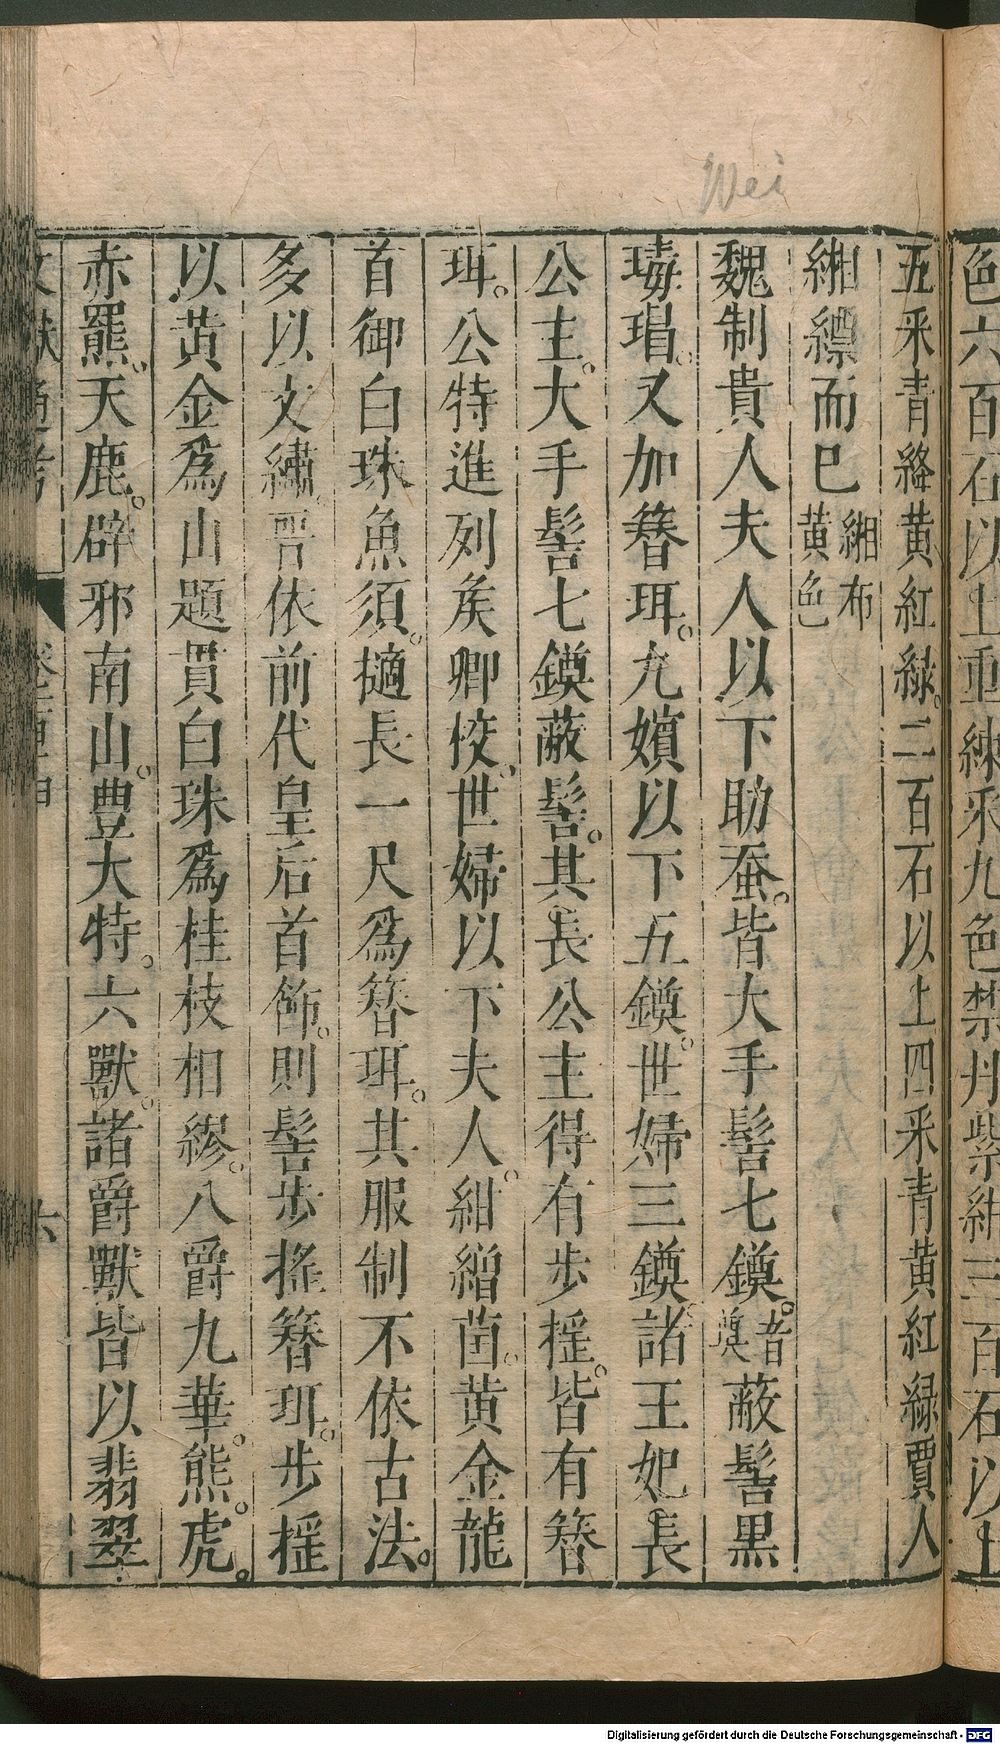 Wei
色六百石以上重練采九色禁丹紫紺三百石以上
五采青絳黄紅緑。二百石以上四采青黄紅緑賈人
緗縹而已緗布黄色
魏制貴人夫人以下助蚕。皆大手髻七鏌。音奠蔽髻黒
瑇瑁。又加簪珥。九嬪以下五鏌。世婦三鏌。諸王妃長
公主。大手髻七鏌蔽髻。其長公主得有歩揺。皆有簪
珥。公特進列矦卿挍。世婦以下夫人。紺繒茵。黄金龍
首御白珠魚須。擿長一尺爲簪珥。其服制不依古法。
多以文繡。晋依前代皇后首飾。則髻歩揺簪珥。歩揺
以黄金爲山題貫白珠爲桂枝相繆。八爵九華。熊。虎。
赤羆。天鹿。辟邪南山。豊大特。六獸。諸爵獸皆以翡翠
文獻通考
六
Digitalisierung gefördert durch die Deutsche Forschungsgemeinschaft - DFG